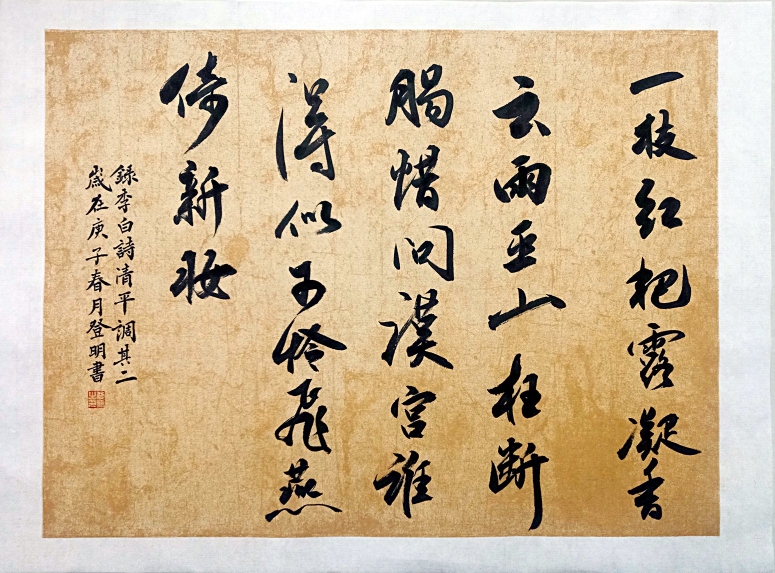 一枝红艳露凝香
云雨巫山枉断
腸借问漢宫谁
得似可怜飛燕
倚新妝
録李白詩清平調其二
歲在庚子春月登明書